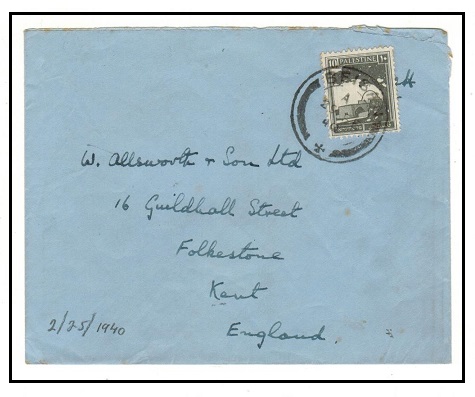 10 PALESTINE ١٠
W. Allsworth & Son Ltd
16 Guildhall Street
Folkestone
Kent
England
2/25/1940